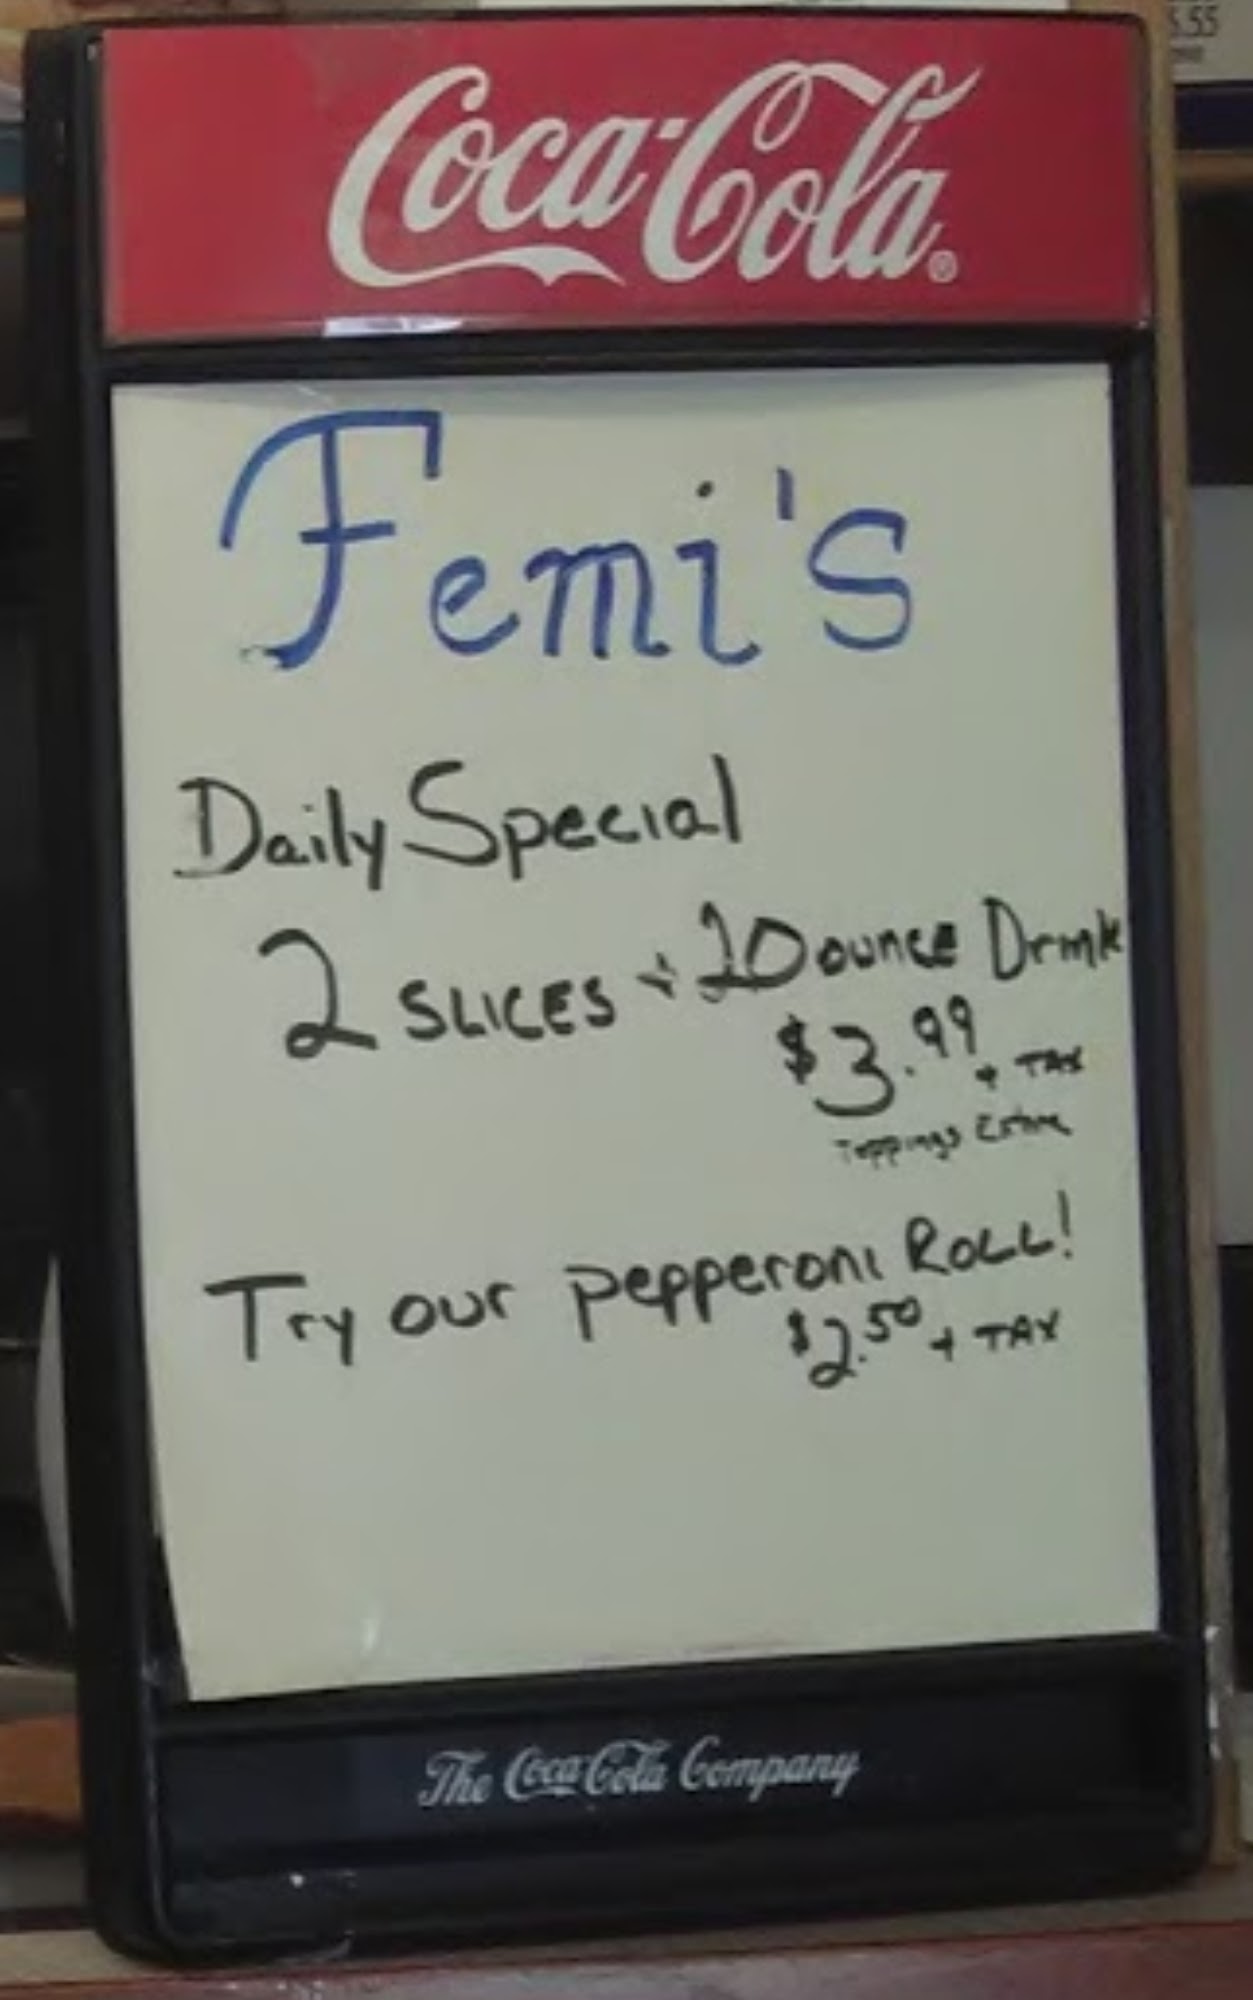 5.55
Coca-Cola®
Femi's
Daily Special
2 SLICES + 20 ounce Drink
$3.99 + TAX
Toppings Extra
Try our pepperoni ROLL!
$2.50 + TAX
The Coca-Cola Company